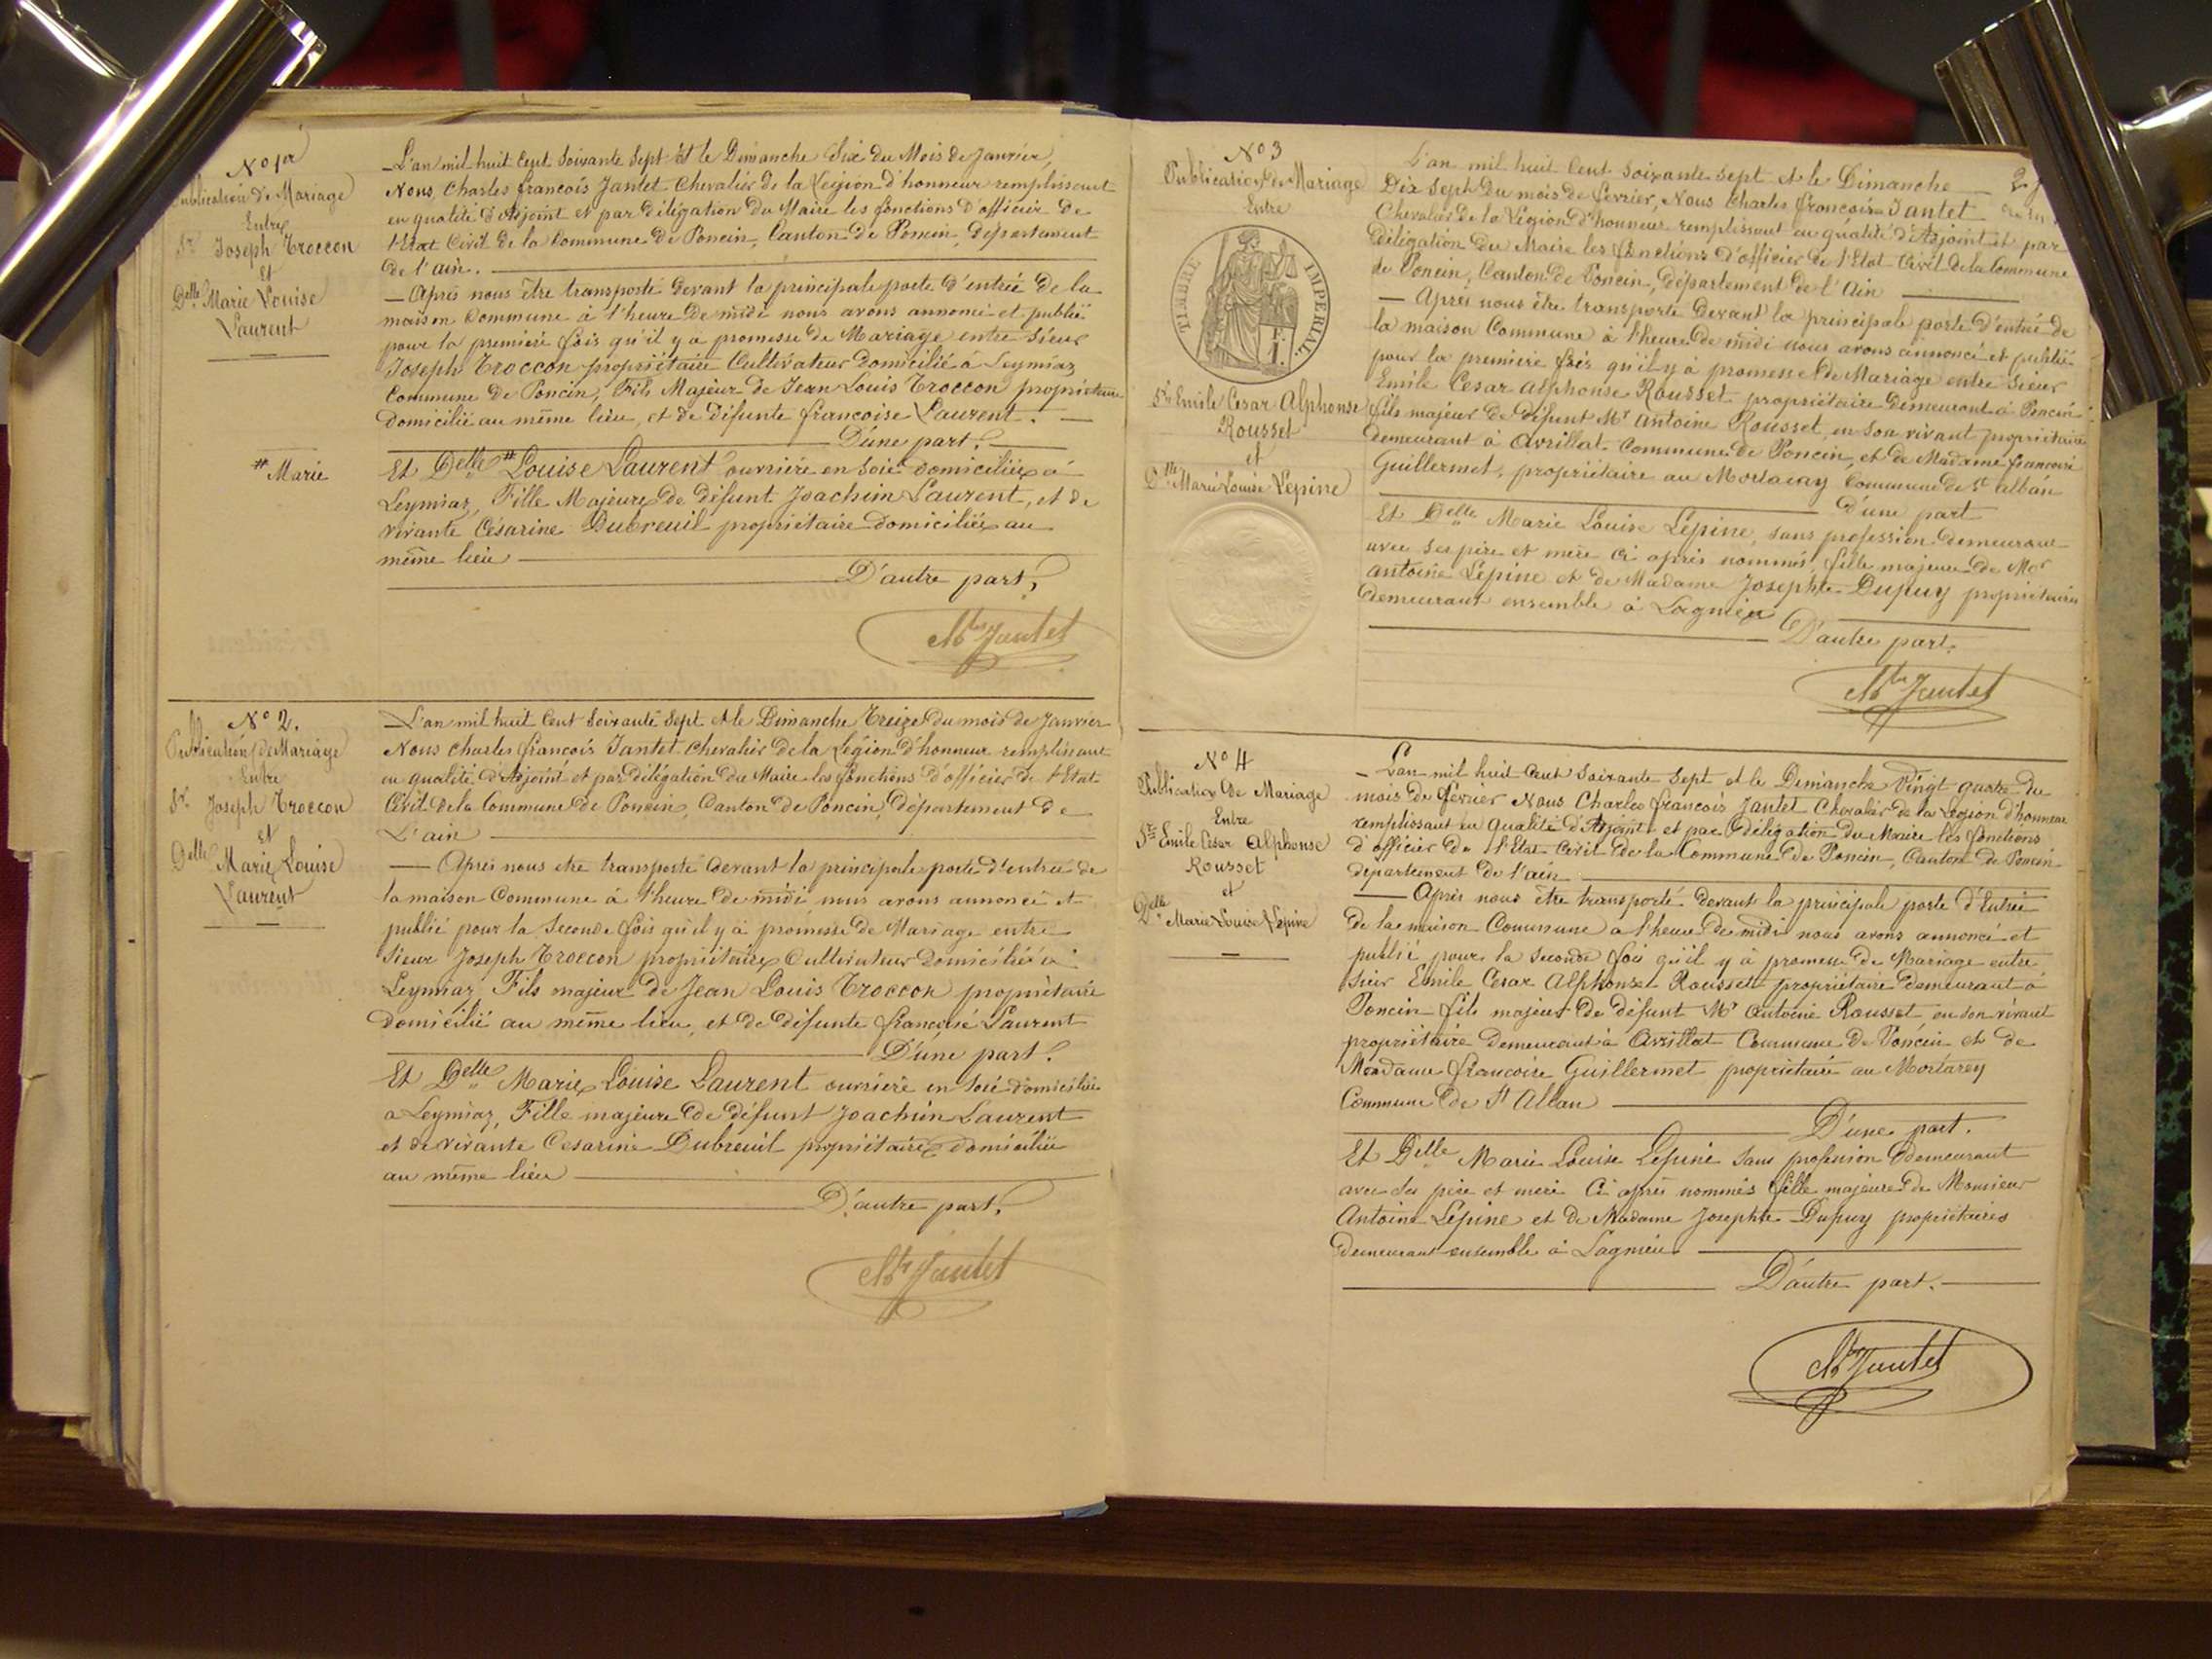 No 1er
Publication de Mariage
Entre
Sr Joseph Troccon
Et
Delle Marie Louise
Laurent
L'an mil huit Cent soixante Sept Et le Dimanche Six du Mois de Janvier,
Nous, Charles francois Jantet Chevalier de la Légion d'honneur remplissant
en qualité d'Adjoint et par délégation du Maire les fonctions d'officier de
l'Etat Civil de la Commune de Poncin, Canton de Poncin, département
de l'ain.
— Après nous être transporté devant la principale porte d'entrée de la
maison Commune à l'heure de midi nous avons annoncé et publié
pour la première fois qu'il y a promesse de Mariage entre Sieur
Joseph Troccon propriétaire Cultivateur domicilié à Leymiaz
Commune de Poncin, Fils Majeur de Jean Louis Troccon propriétaire
domicilié au même lieu, et de défunte francoise Laurent. —
D'une part.
# Marie
Et Delle # Louise Laurent ouvrière en soie domiciliée à
Leymiaz, Fille Majeure de défunt Joachim Laurent, et de
vivante Césarine Dubreuil propriétaire domiciliée au
même lieu
D'autre part,
Chles Jantet
No 2.
Publication de Mariage
Entre
Sr Joseph Troccon
Et
Delle Marie Louise
Laurent
L'an mil huit Cent Soixante Sept et le Dimanche Treize du mois de Janvier
Nous Charles francois Jantet Chevalier de la Légion d'honneur remplissant
en qualité d'Adjoint et par délégation du Maire les fonctions d'officier de l'Etat
Civil de la Commune de Poncin, Canton de Poncin, département de
L'ain
— Après nous etre transporté devant la principale porte d'entrée de
la maison Commune à l'heure de midi nous avons annoncé et
publié pour la Seconde fois qu'il y à promesse de Mariage entre
Sieur Joseph Troccon propriétaire Cultivateur domicilié à
Leymiaz Fils majeur de Jean Louis Troccon propriétaire
domicilié au même lieu, et de défunte françoise Laurent
D'une part.
Et Delle Marie Louise Laurent ouvrière en soie domiciliée
a Leymiaz, Fille majeure de défunt Joachim Laurent
et de vivante Cesarine Dubreuil propriétaire domiciliée
au même lieu
D'autre part,
Chles Jantet
No 3
Publication de Mariage
Entre
TIMBRE IMPERIAL.
Sr Emile Cesar Alphonse
Rousset
et
Dlle Marie Louise Lepine
L'an mil huit Cent soixante sept et le Dimanche
Dix Sept du mois de février, Nous Charles francois Jantet
Chevalier de la Légion d'honneur remplissant en qualité d'Adjoint et par
délégation du Maire les fonctions d'officier de l'Etat Civil de la Commune
de Poncin, Canton de Poncin, département de l'Ain
— Après nous être transporté devant la principale porte d'entrée de
la maison Commune à l'heure de midi nous avons annoncé et publié
pour la première fois qu'il y à promesse de Mariage entre Sieur
Emile Cesar Alphonse Rousset propriétaire demeurant à Poncin
fils majeur de défunt Mr Antoine Rousset, en son vivant propriétaire
demeurant à Avrillat Commune de Poncin, et de Madame francoise
Guillermet, propriétaire au Mortarey Commune de St Alban
D'une part
Et Delle Marie Louise Lépine, sans profession demeurant
avec ses père et mère ci après nommés, fille majeure de Mr
Antoine Lépine et de Madame Josephte Dupuy propriétaires
demeurant ensemble à Lagnieu
D'autre part.
Chles Jantet
No 4
Publication de Mariage
Entre
Sr Emile César Alphonse
Rousset
et
Delle Marie Louise Lepine
— L'an mil huit Cent Soixante Sept et le Dimanche Vingt quatre du
mois de février Nous Charles francois Jantet Chevalier de la Légion d'honneur
remplissant en qualité d'Adjoint et par délégation du Maire les fonctions
d'officier de l'Etat Civil de la Commune de Poncin, Canton de Poncin
département de l'ain
— Après nous être transporté devant la principale porte d'Entrée
de la maison Commune a l'heure de midi nous avons annoncé et
publié pour la seconde fois qu'il y à promesse de Mariage entre
Sieur Emile Cesar Alphonse Rousset propriétaire demeurant à
Poncin fils majeur de défunt Mr Antoine Rousset en son vivant
propriétaire demeurant à Avrillat Commune de Poncin et de
Madame francoise Guillermet propriétaire au Mortarey
Commune de St Alban
D'une part.
Et Delle Marie Louise Lépine Sans profession demeurant
avec ses père et mère Ci après nommés fille majeure de Monsieur
Antoine Lépine et de Madame Josephte Dupuy propriétaires
demeurant ensemble à Lagnieu
D'autre part.
Chles Jantet